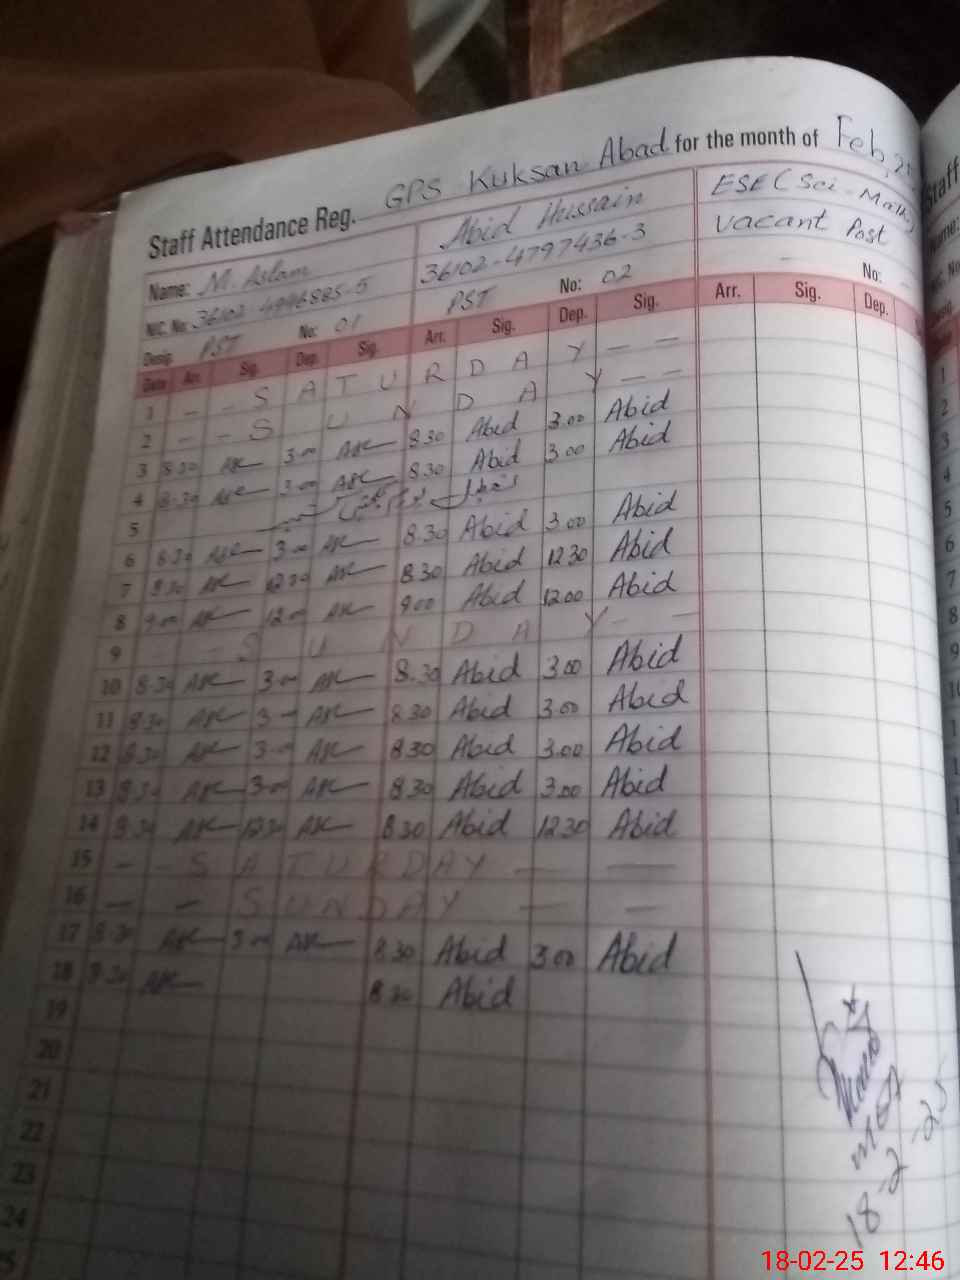 Staff Attendance Reg. GPS Kuksan Abad for the month of Feb, 25
Name: M. Aslam Abid Hussain ESE (Sci-Math)
N.I.C. No. 36102-4797436-3 Vacant Post
Desig. PST No: 01 PST No: 02 - No:
Date Arr. Sig. Dep. Sig. Arr. Sig. Dep. Sig. Arr. Sig. Dep.
1 - - S A T U R D A Y - -
2 - - S U N D A Y - -
3 8:30 3:00 8:30 Abid 3:00 Abid
4 8:30 3:00 8:30 Abid 3:00 Abid
5
6 8:30 3:00 8:30 Abid 3:00 Abid
7 8:30 12:30 8:30 Abid 12:30 Abid
8 9:00 12:00 9:00 Abid 12:00 Abid
9 - - S U N D A Y - -
10 8:30 3:00 8:30 Abid 3:00 Abid
11 8:30 3:00 8:30 Abid 3:00 Abid
12 8:30 3:00 8:30 Abid 3:00 Abid
13 8:30 3:00 8:30 Abid 3:00 Abid
14 8:30 12:30 8:30 Abid 12:30 Abid
15 - - S A T U R D A Y - -
16 - - S U N D A Y - -
17 8:30 3:00 8:30 Abid 3:00 Abid
18 8:30 8:30 Abid
19
20
21
22
23
24
MEA
18-2-25
Staff
Name:
1
2
3
4
5
6
7
8
9
10
18-02-25 12:46